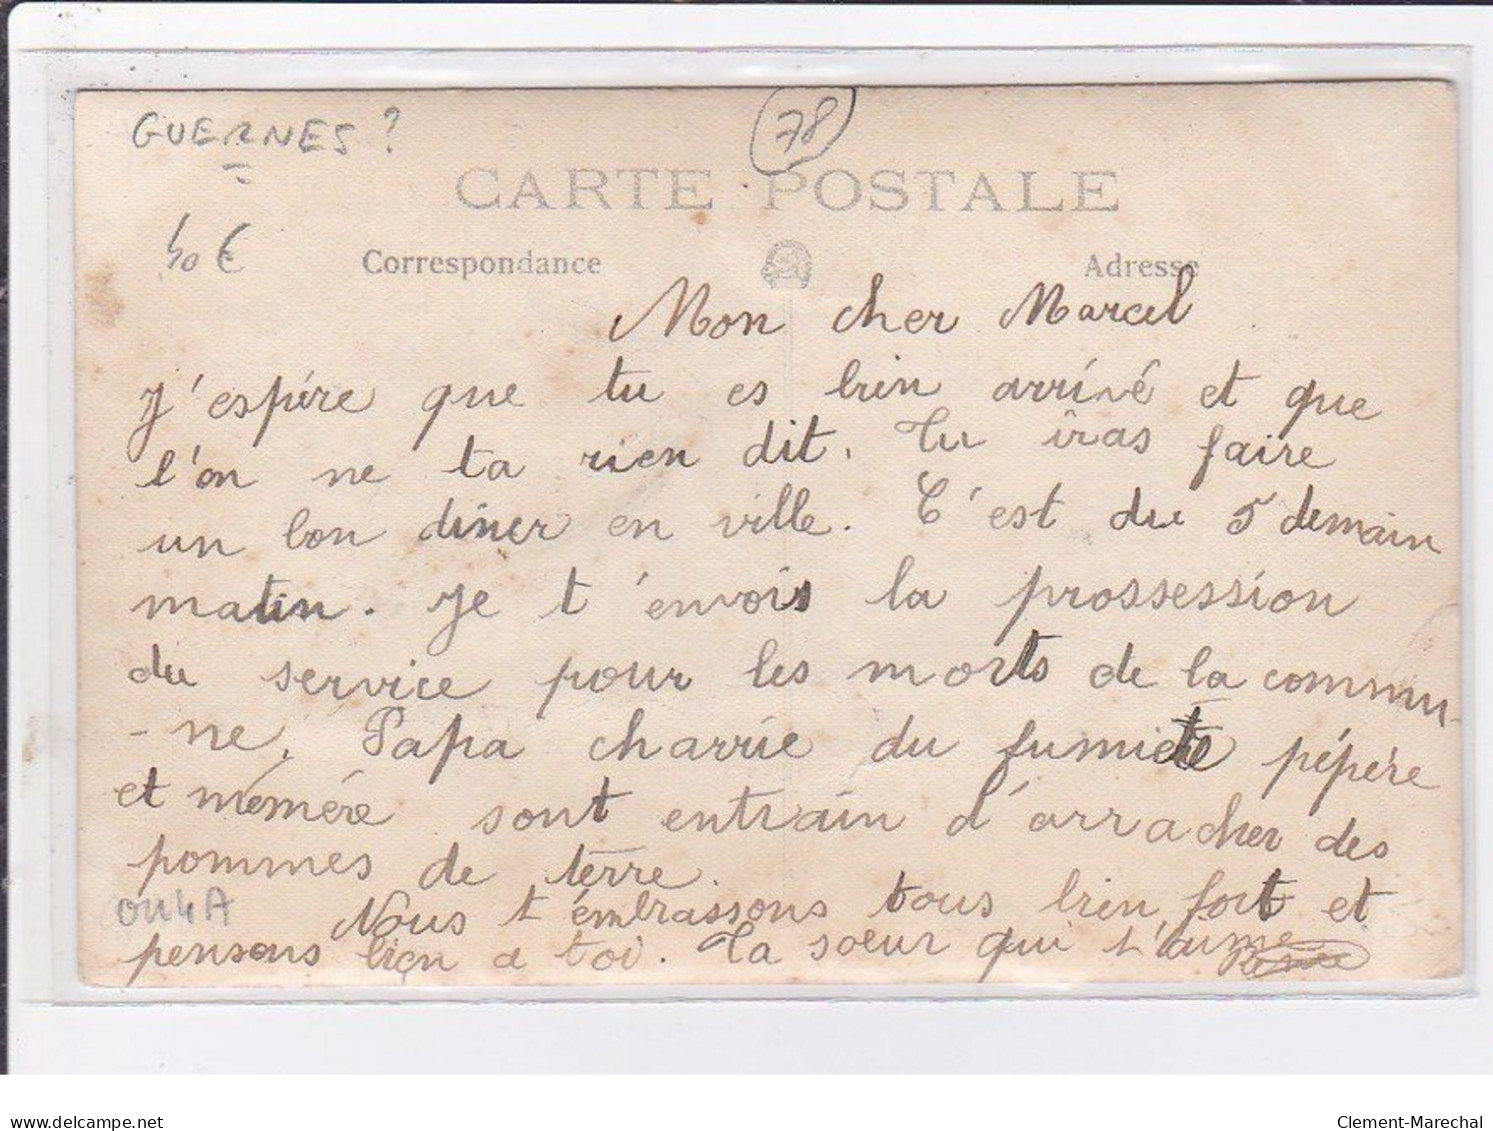 GUERNES ?
78
CARTE POSTALE
40 €
Correspondance
Adresse
Mon cher Marcel
J'espére que tu es bien arrivé et que
l'on ne ta rien dit. Tu iras faire
un bon diner en ville. C'est du 5 demain
matin. Je t'envois la prossession
du service pour les morts de la commu-
-ne. Papa charrie du fumier pépère
et mémére sont entrain d'arracher des
pommes de terre.
0114A
Nous t'embrassons tous bien fort et
pensons bien a toi. Ta soeur qui t'aime
delcampe.net
Clement-Marechal